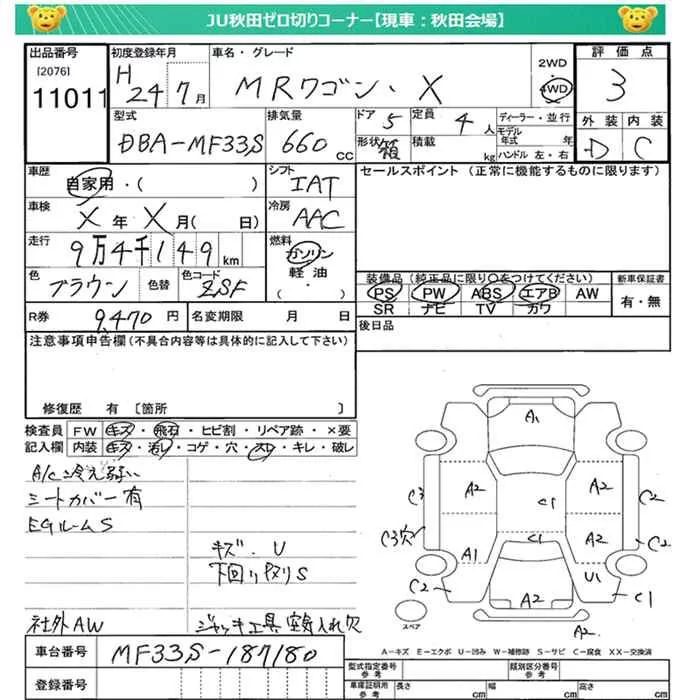 JU秋田ゼロ切りコーナー【現車：秋田会場】
出品番号 初度登録年月 車名・グレード 2WD 評価点
[2076] H 4WD
11011 24年7月 MRワゴン・X 3
型式 排気量 ドア 定員 ディーラー・並行 外装 内装
5 4人 モデル年式 年
DBA-MF33S 660cc 形状 箱 積載 kg ハンドル 左・右 D C
車歴 シフト セールスポイント（正常に機能するものに限ります）
自家用・（ ） IAT
車検 冷房
X年X月（ 日） AAC
走行 燃料
9万4千149km ガソリン
軽油・
色 色替 色コード （ ） 装備品（純正品に限り○をつけてください） 新車保証書
ブラウン ZSF PS PW ABS エアB AW 有・無
SR ナビ TV カワ
R券 9,470円 名変期限 月 日 後日品
注意事項申告欄（不具合内容等は具体的に記入して下さい）
修復歴 有 〔箇所 〕
検査員 FW キズ・飛石・ヒビ割・リペア跡・×要
記入欄 内装 キズ・汚レ・コゲ・穴・スレ・キレ・破レ
A/C冷え弱い
シートカバー有
EGルームS
キズ・U
下回りサビS
社外AW ジャッキ工具
A1
A2 A2
C1
C3 C2
C3穴 A2 C2
C1
A1 U1
C2 A2 C1
スペア A2
A－キズ E－エクボ U－凹み W－補修跡 S－サビ C－腐食 XX－交換済
車台番号 MF33S-187180
登録番号
型式指定番号 参考 類別区分番号 参考
車庫証明用 参考 長さ cm 幅 cm 高さ cm